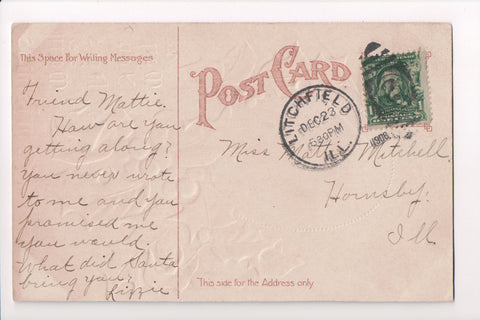 This Space For Writing Messages
POST CARD
Friend Mattie.
How are you
getting along?
You never wrote
to me and you
promised me
you would.
What did Santa
bring you?
Lizzie
LITCHFIELD
DEC 23
630PM
ILL.
Miss Mattie Mitchell
Hornsby.
Ill
This side for the Address only